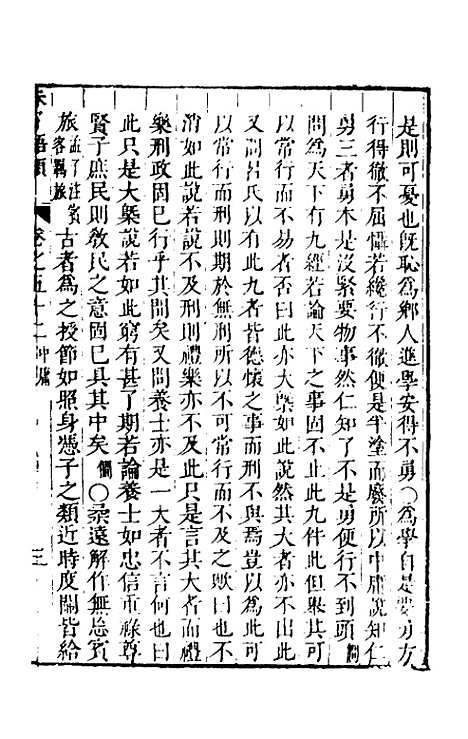 是則可憂也既恥爲鄉人進學安得不勇○爲學自是要勇方
行得徹不屈懾若纔行不徹便是半塗而廢所以中庸說知仁
勇三者勇本是沒緊要物事然仁知了不是勇便行不到頭僩
問爲天下有九經若論天下之事固不止此九件此但舉其可
以常行而不易者否曰此亦大槩如此說然其大者亦不出此
又問呂氏以有此九者皆德懷之事而刑不與焉豈以爲此可
以常行而刑則期於無刑所以不可常行而不及之歟曰也不
消如此說若說不及刑則禮樂亦不及此只是言其大者而禮
樂刑政固已行乎其間矣又問養士亦是一大者不言何也曰
此只是大槩說若如此窮有甚了期若論養士如忠信重祿尊
賢子庶民則敎民之意固已具其中矣僩○柔遠解作無忘賓
旅孟子注賓客羈旅古者爲之授節如照身憑子之類近時度關皆給
朱子語類 卷之五十二 中庸 三